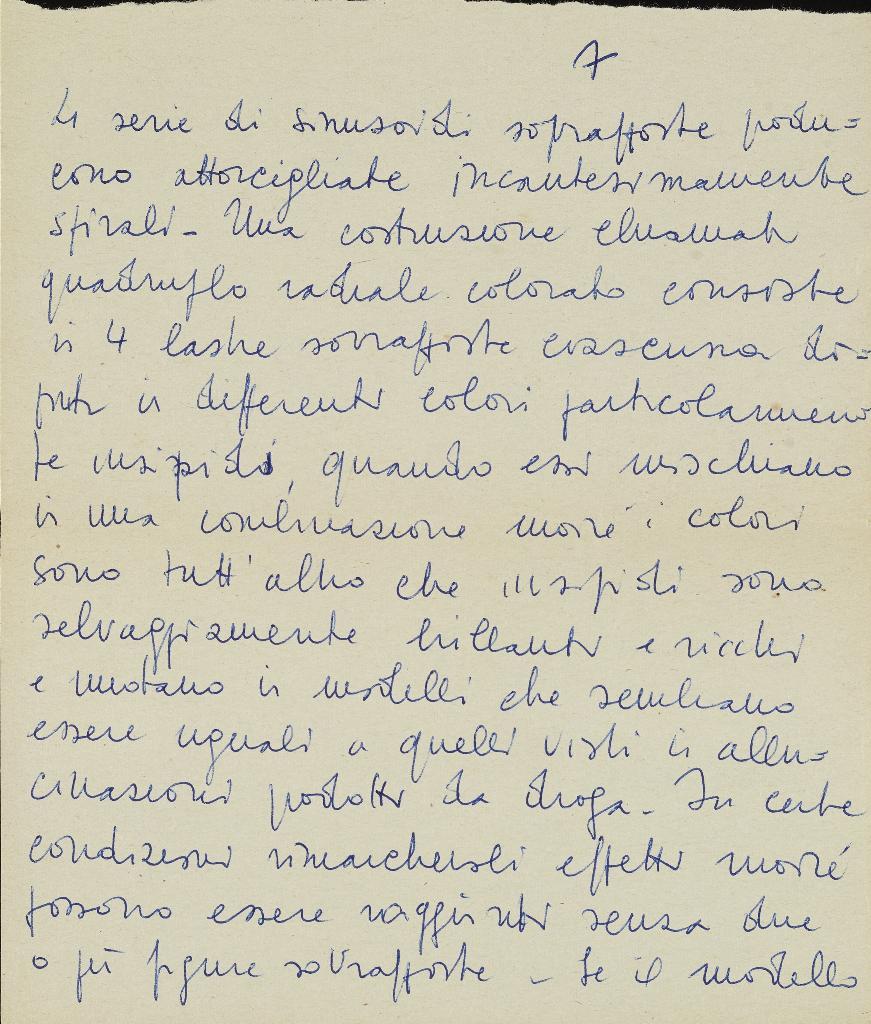 7
4 serie di sinusoidi sopraffoste produ=
cono attorcigliate incantesimamente
spirali - Una costruzione chiamata
quadruplo radiale colorato consiste
in 4 lastre sovrapposte ciascuna di=
pinta in differenti colori particolarmen
te insipidi, quando essi mischiano
in una combinazione moiré i colori
sono tutt'altro che insipidi sono
selvaggiamente brillanti e ricchi
e ruotano in modelli che sembrano
essere uguali a quelli visti in allu=
cinazioni prodotti da droga - In certe
condizioni rimarchevoli effetti moiré
possono essere raggiunti senza due
o più figure sovrapposte - Se il modello